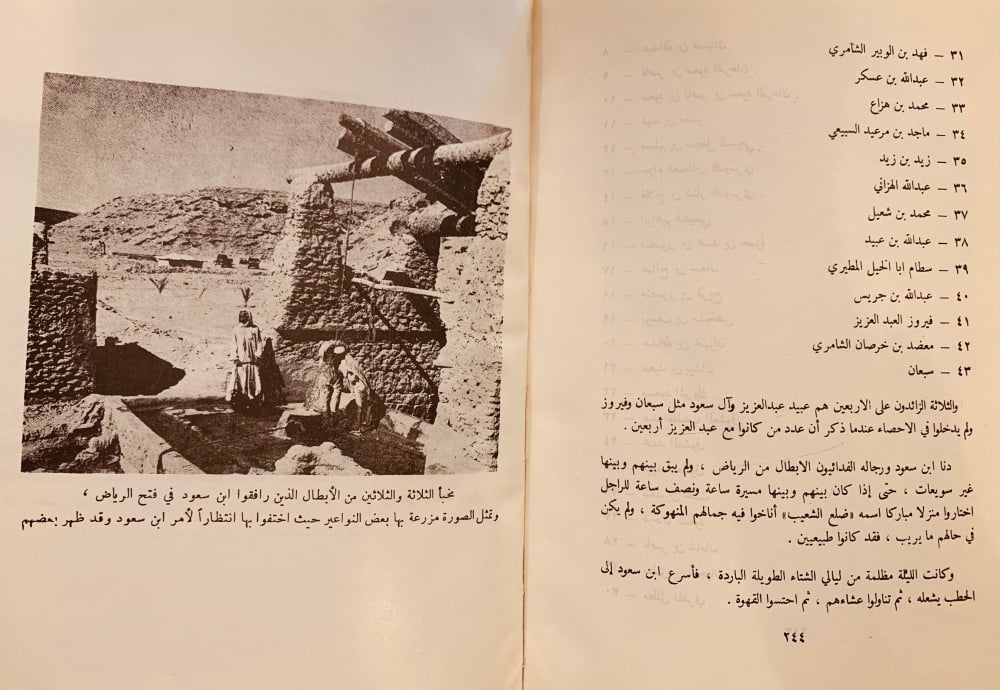 ٣١ – فهد بن الوبير الشامري
٣٢ – عبدالله بن عسكر
٣٣ – محمد بن هزاع
٣٤ – ماجد بن مرعيد السبيعي
٣٥ – زيد بن زيد
٣٦ – عبدالله الهزاني
٣٧ – محمد بن شعيل
٣٨ – عبدالله بن عبيد
٣٩ – سطام ابا الخيل المطيري
٤٠ – عبدالله بن جريس
٤١ – فيروز العبد العزيز
٤٢ – معضد بن خرصان الشامري
٤٣ – سبعان
والثلاثة الزائدون على الاربعين هم عبيد عبدالعزيز وآل سعود مثل سبعان وفيروز
ولم يدخلوا في الاحصاء عندما ذكر أن عدد من كانوا مع عبد العزيز أربعين .
دنا ابن سعود ورجاله الفدائيون الابطال من الرياض ، ولم يبق بينهم وبينها
غير سويعات ، حتى إذا كان بينهم وبينها مسيرة ساعة ونصف ساعة للراجل
اختاروا منزلا مباركا اسمه «ضلع الشعيب» أناخوا فيه جمالهم المنهوكة ، ولم يكن
في حالهم ما يريب ، فقد كانوا طبيعيين .
وكانت الليلة مظلمة من ليالي الشتاء الطويلة الباردة ، فأسرع ابن سعود إلى
الحطب يشعله ، ثم تناولوا عشاءهم ، ثم احتسوا القهوة .
٢٤٤
مخبأ الثلاثة والثلاثين من الأبطال الذين رافقوا ابن سعود في فتح الرياض ،
وتمثل الصورة مزرعة بها بعض النواعير حيث اختفوا بها انتظاراً لأمر ابن سعود وقد ظهر بعضهم